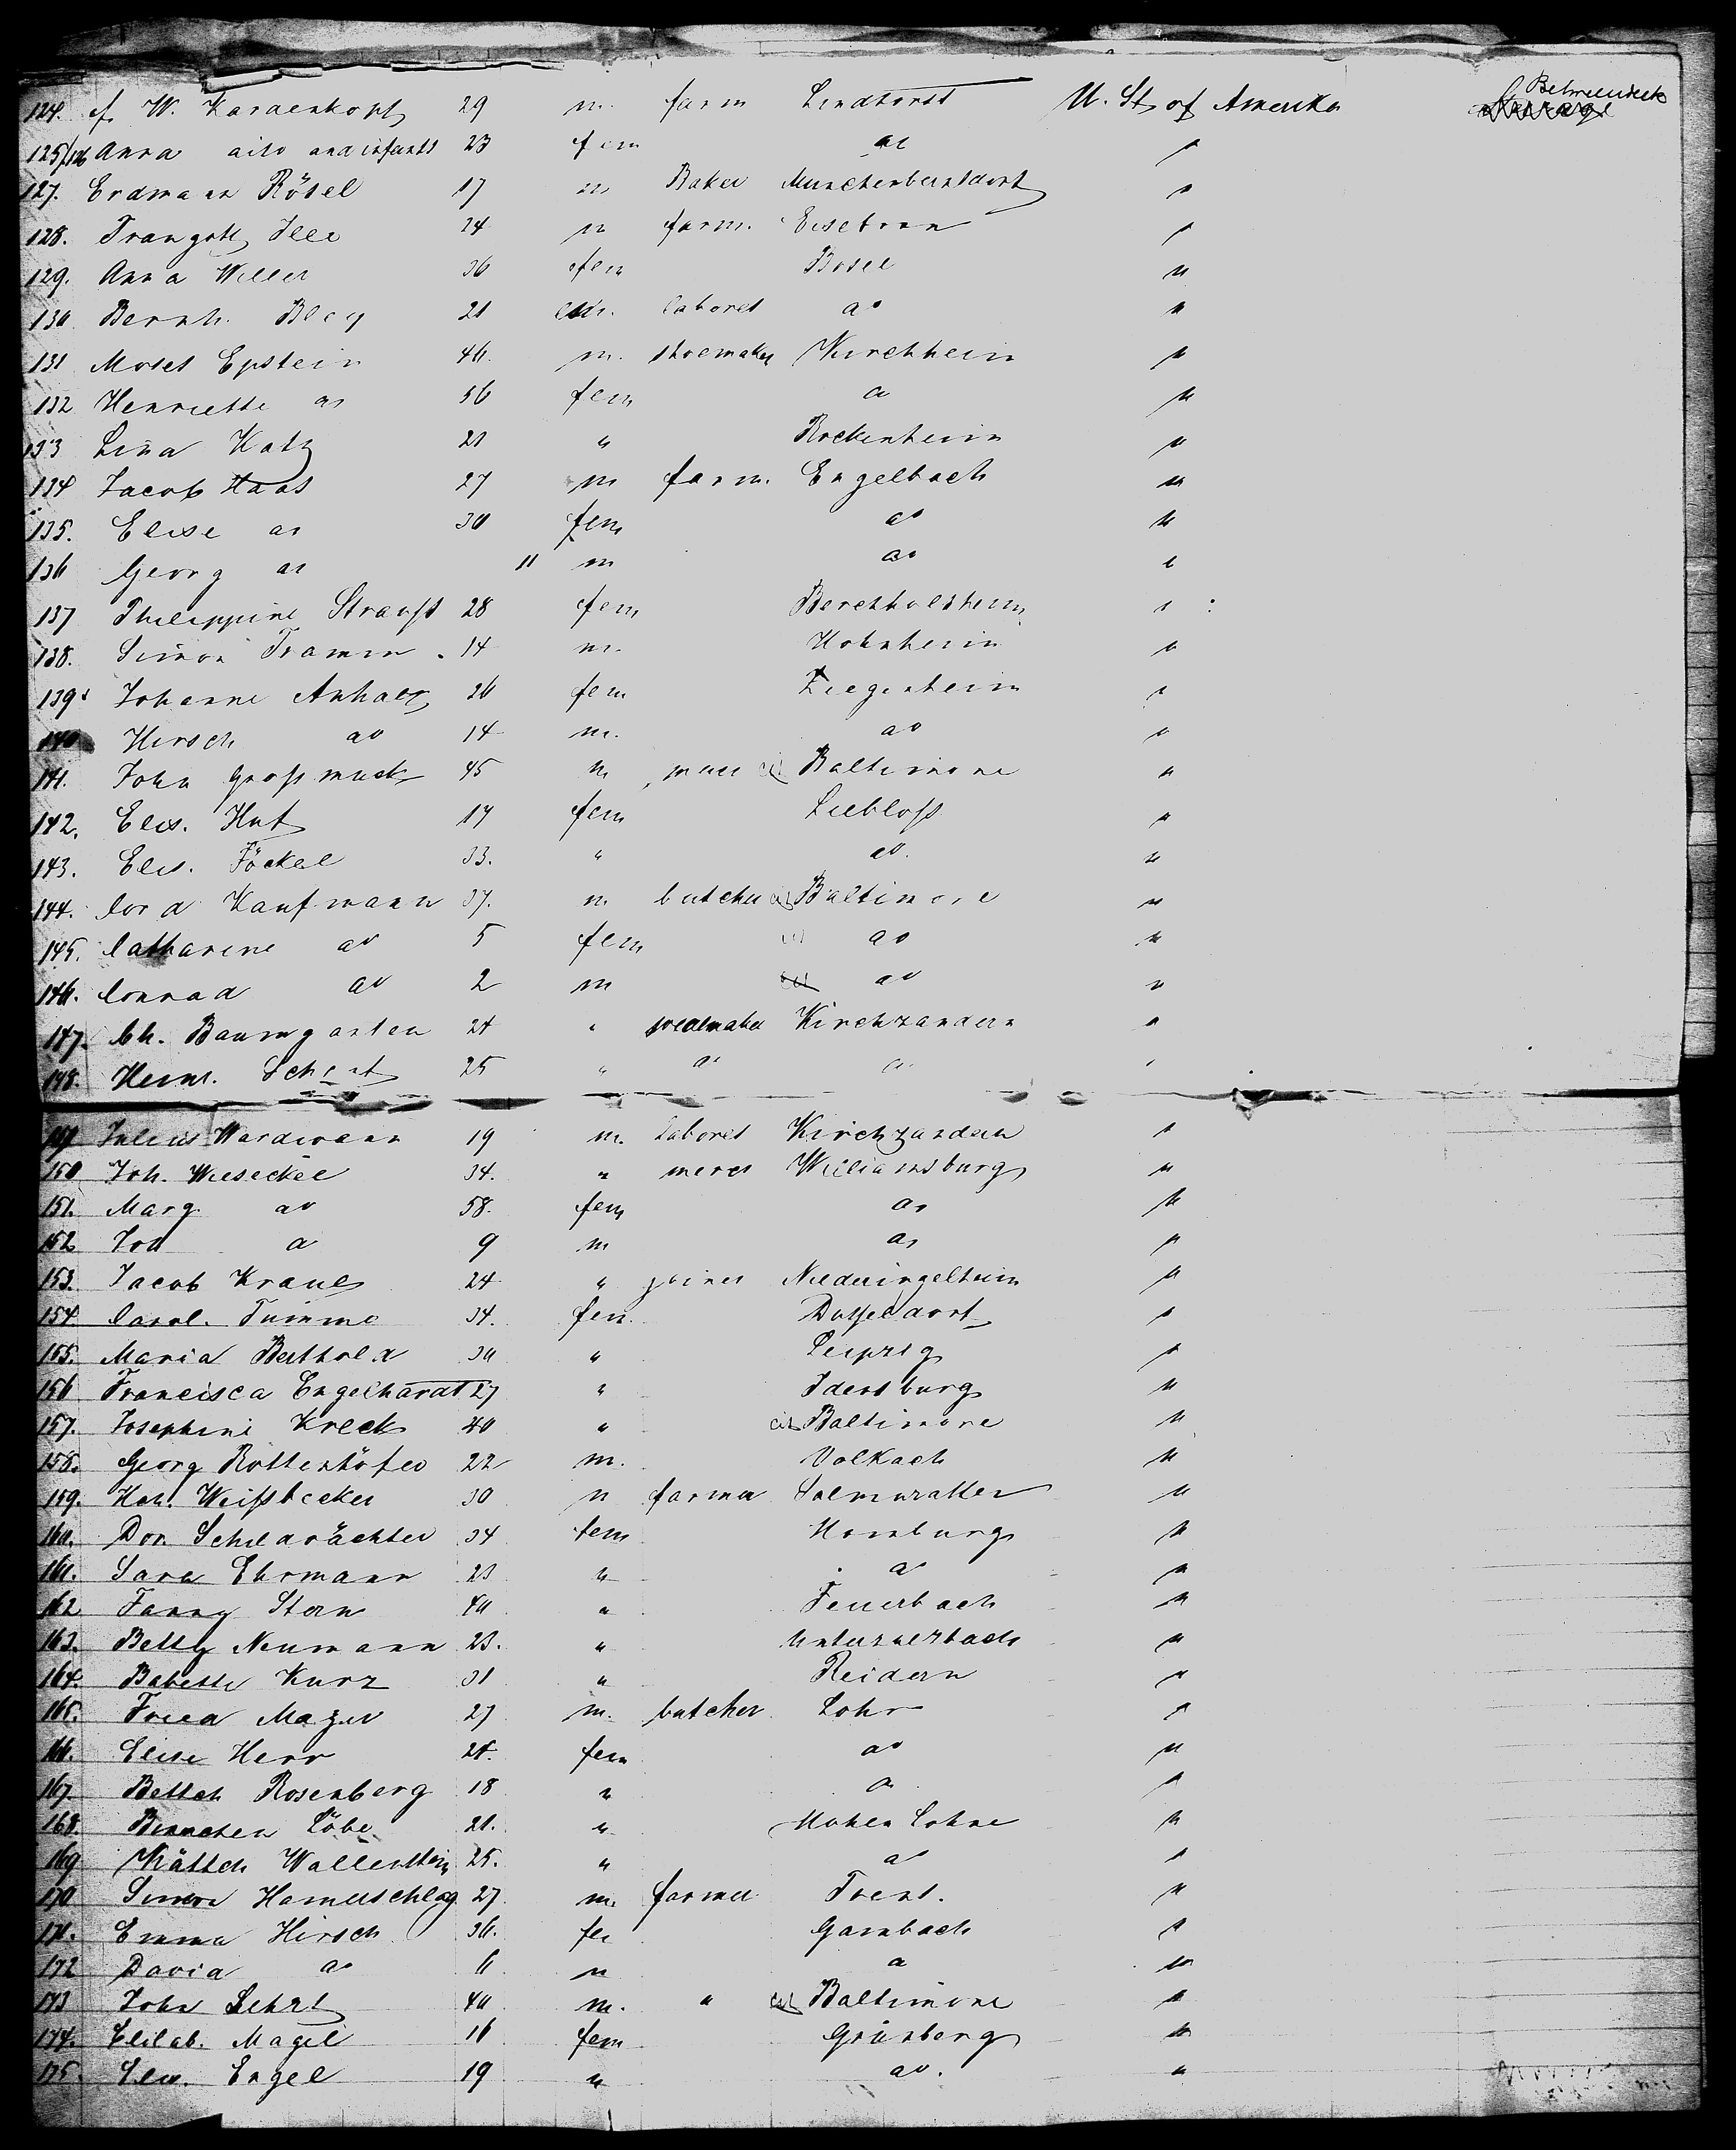 124. f. W. Kardenkopf 29 m. farm Lindhorst U. St. of Amerika Betweendeck
125/126 Anna dito and infants 23 fem do "
127. Erdmann Rösel 17 m Baker Munchenbernsdorf "
128. Traugott Ille 24 m farm. "
129. Anna Willer 36 fem Bosel "
130 Bernh. Bley 21 m. laborer do "
131 Moses Epstein 46. m. shoemaker Kirchhein "
132 Henriette do 56 fem do "
133 Lina Katz 21 " Rockenheim "
134 Jacob Haas 27 m farm. Engelbach "
135. Elise do 30 fem do "
136 Georg do 11 m do "
137 Philippine Strauss 28 fem Berchholsheim "
138. Simon Tramm. 14 m. Hohnheim "
139. Johanne Anhalt 26 fem Ziegenheim "
140 Hirsch do 14 m. do "
141. John Grossmuck 45 m cit Baltimore "
142. Elis. Hut 17 fem Liebloss "
143. Elis. Föckel 33. " do. "
144. Cord Kaufmann 37. m butcher cit Baltimore "
145. Catharine do 5 fem cit do "
146. Conrad do 2 m do "
147. Ch. Baumgarten 24 " Kirchzandern "
148. Heinr. 25 " do do "
149 Julius Wardmann 19 m. Laborer Kirchzandern "
150 Joh. Wieseckel 34. " merch Williamsburg "
151. Marg. do 58. fem do "
152 Joh do 9 m do "
153. Jacob Kraul 24 " joiner Niederingelheim "
154. Carol. Timme 34. fem. Dusseldorf "
155. Maria Berthold 30 " Leipzig "
156 Francisca Engelhardt 27 " Idensburg "
157. Josephine Kreck 40 " cit Baltimore "
158. Georg Rottenhöfer 22 m. Volkach "
159. Hch. Weissbecker 30 m farmer "
160. Dor. Schildwächter 34 fem Homburg "
161. Sara Ehrmann 23 " do "
162 Fanny Stern 40 " Feuerbach "
163. Betty Neumann 23. " "
164. Babette Kurz 31 " Reidern "
165. Fried Mayer 27 m. butcher Lohr "
166. Elise Herr 28. fem do "
167. Bettch Rosenberg 18 " do "
168. Binnchen Löbe 21. " Hohen Lohne "
169 Kättch Wallenstein 25. " do "
170 Simon Hamerschlag 27 m. farmer Trent. "
171. Emma Hirsch 36. fe Gambach "
172 David do 6 m do "
173 John 40 m. " cit Baltimore "
174. Elisab. Magel 16 fem Grünberg "
175. Elis. Engel 19 " do. "